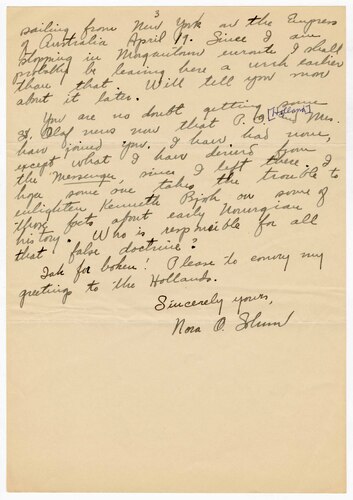 3
sailing from New York on the Empress
of Australia April 19. Since I am
stopping in Morgantown enroute I shall
probably be leaving here a week earlier
than that. Will tell you more
about it later.
You are no doubt getting some
St. Olaf news now that P. G. [Holland] Mrs.
have joined you. I have had none,
except what I have gleaned from
the Messenger, since I left there. I
hope some one takes the trouble to
enlighten Kenneth Bjork on some of
those facts about early Norwegian
history. Who is responsible for all
that false doctrine?
Tak for boken! Please to convey my
greetings to the Hollands.
Sincerely yours,
Nora O. Solum